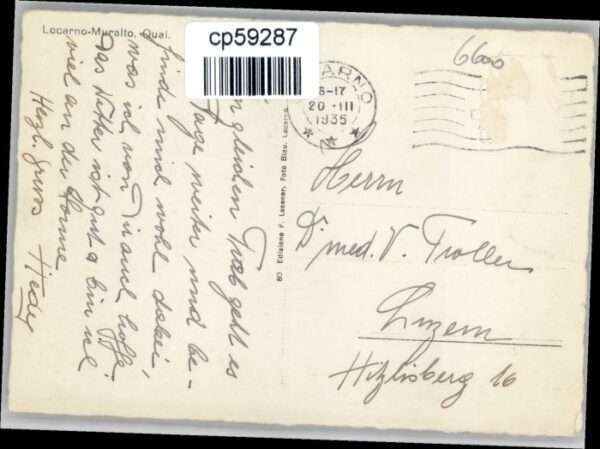 Locarno-Muralto, Quai.
cp59287
gleichen Trab geht es
Tage weiter und be-
finde mich wohl dabei,
was ich von Dir auch hoffe.
Das Wetter ist gut & bin sel
viel an der Sonne
Herzl. Gruss Hedy
60 Edizione F. Lassner, Foto Blau, Locarno
ARNO
6-17
20 · III
1935
6600
Herrn
Dr med. V. Troller
Luzern
Hitzlisberg 16